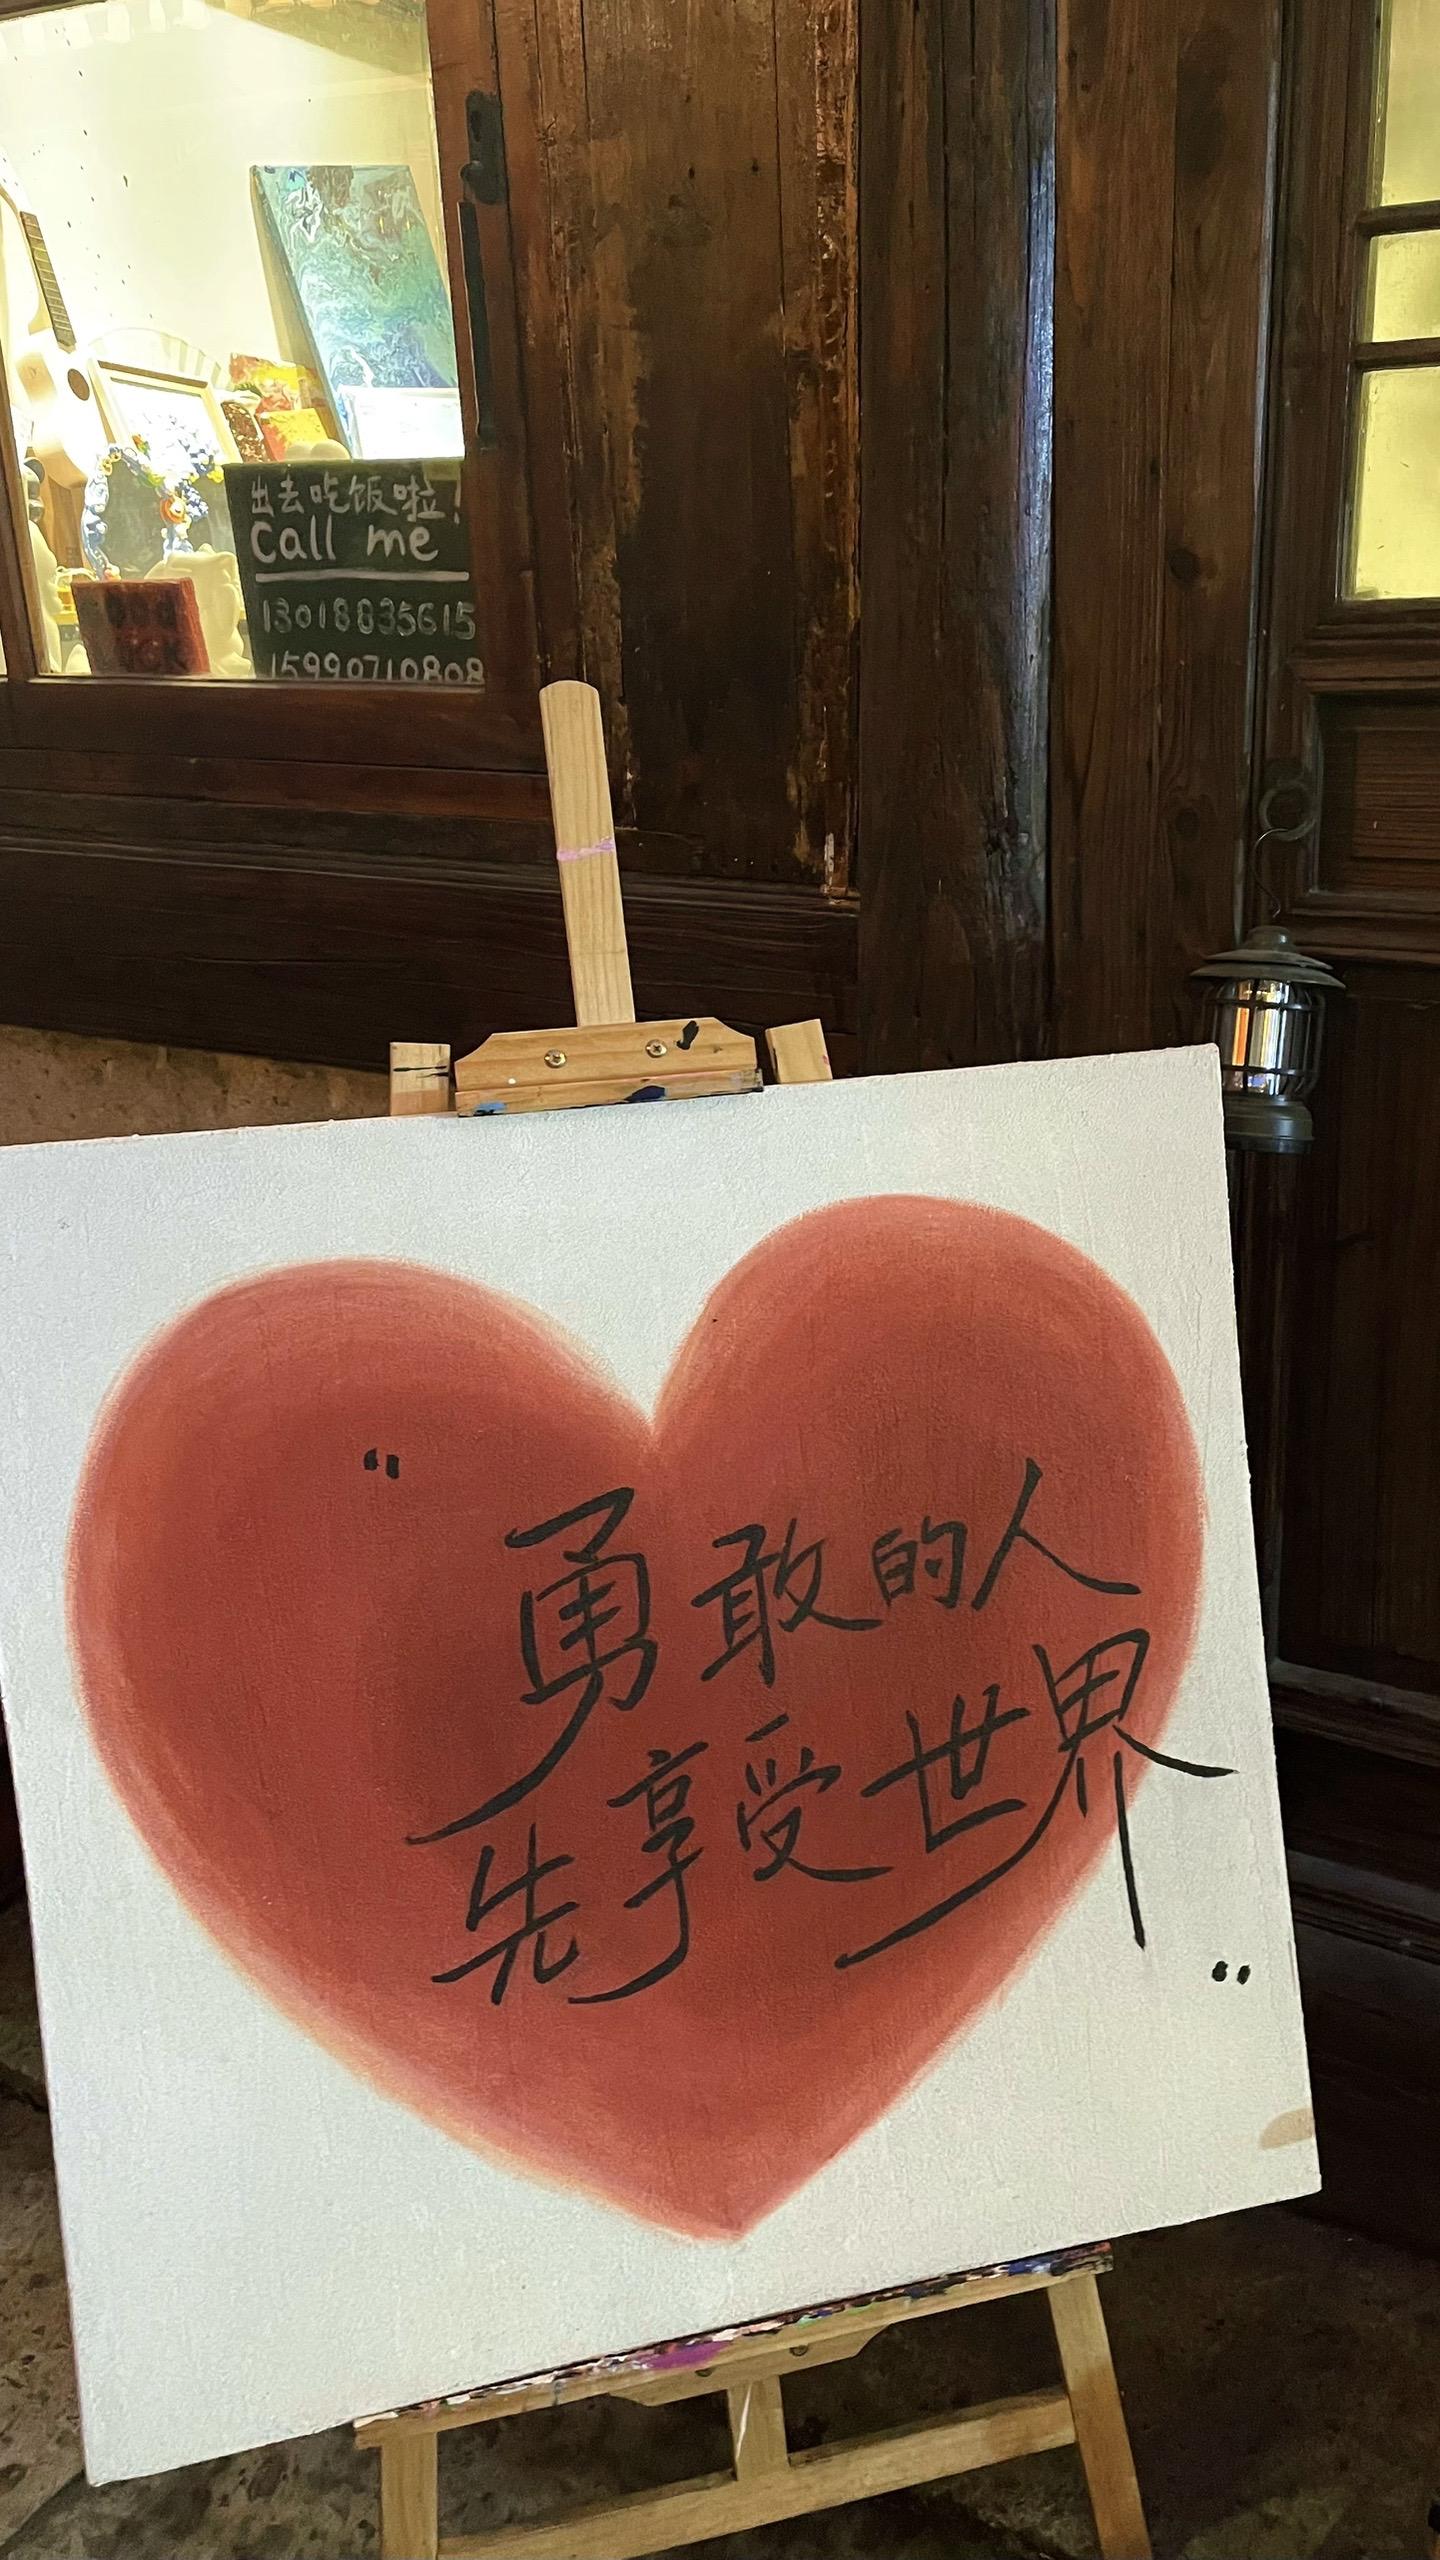 出去吃饭啦！
Call me
13018835615
15990710808
“勇敢的人
先享受世界”